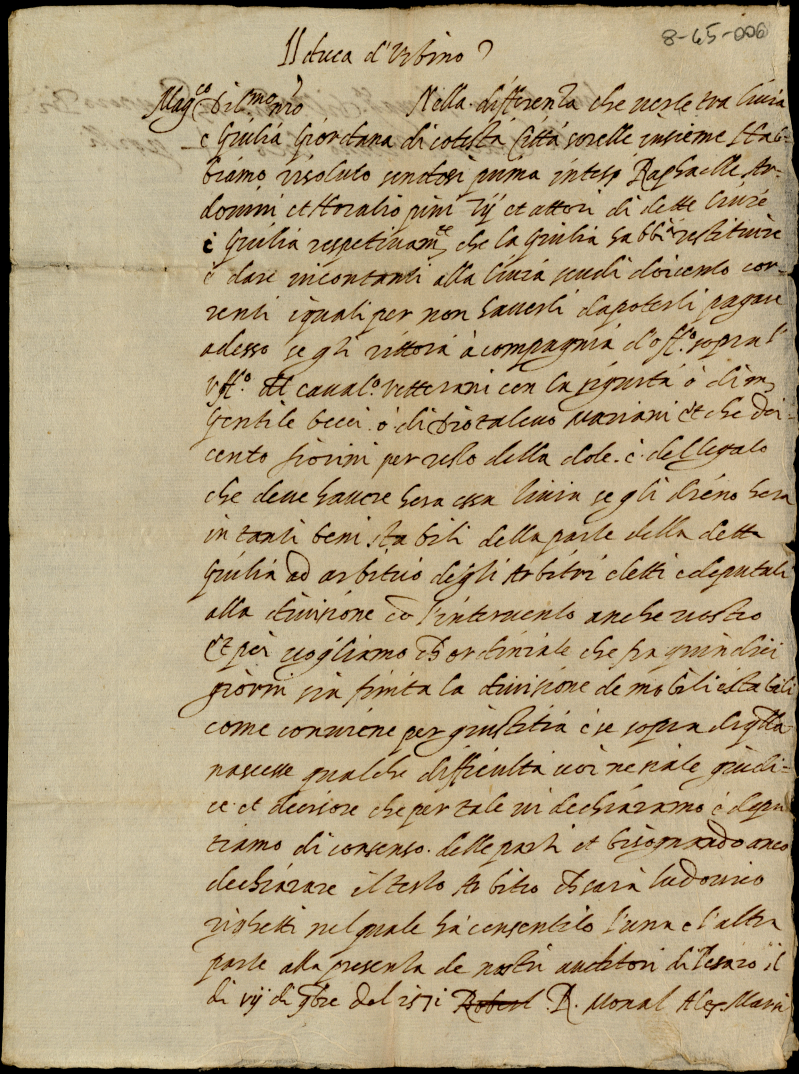 8-65-006
Il duca d'Urbino
Mag.co Dil.mo n͞ro Nella differenza che verte tra livia
e Giulia Giordana di cotesta Città sorelle insieme Hab-
biamo risoluto sendosi prima inteso Raphaelle Ar-
et Horatio et attori di dette livie
è Giulia respetivam.te che la Giulia habbi restituire
è dare incontanti alla livia scudi doicento cor-
renti i quali per non haverli da poterli pagare
adesso se gli à compagnia d'off.o sopra l'
uff.o del caval.o vetterani con la sigurtà ò di m.
Gentile becci ò di Diotalevo Mariani et che doi-
cento fiorini per resto della dote è del legato
che deve havere hora essa livia se gli dieno hora
in tanti beni stabili della parte della detta
Giulia ad arbitrio degli Arbitri eletti e deputati
alla divisione co l'intervento anche vostro
Et però vogliamo ch ordiniate che fra quindici
giorni sia finita la divisione de mobili e stabili
come conviene per giustitia è se sopra di q͞lla
nascesse qualche difficultà voi ne siate giudi-
ce et decisore che per tale vi dechiaramo è depu
tiamo di consenso delle parti et bisognando anco
dechiarare il terzo Arbitro ch sarà ludovico
righetti nel quale hà consentito l'una e l'altra
parte alla presenza de nostri auditori di Pesaro il
di vij di 9bre del 1571 R. Monal Alex